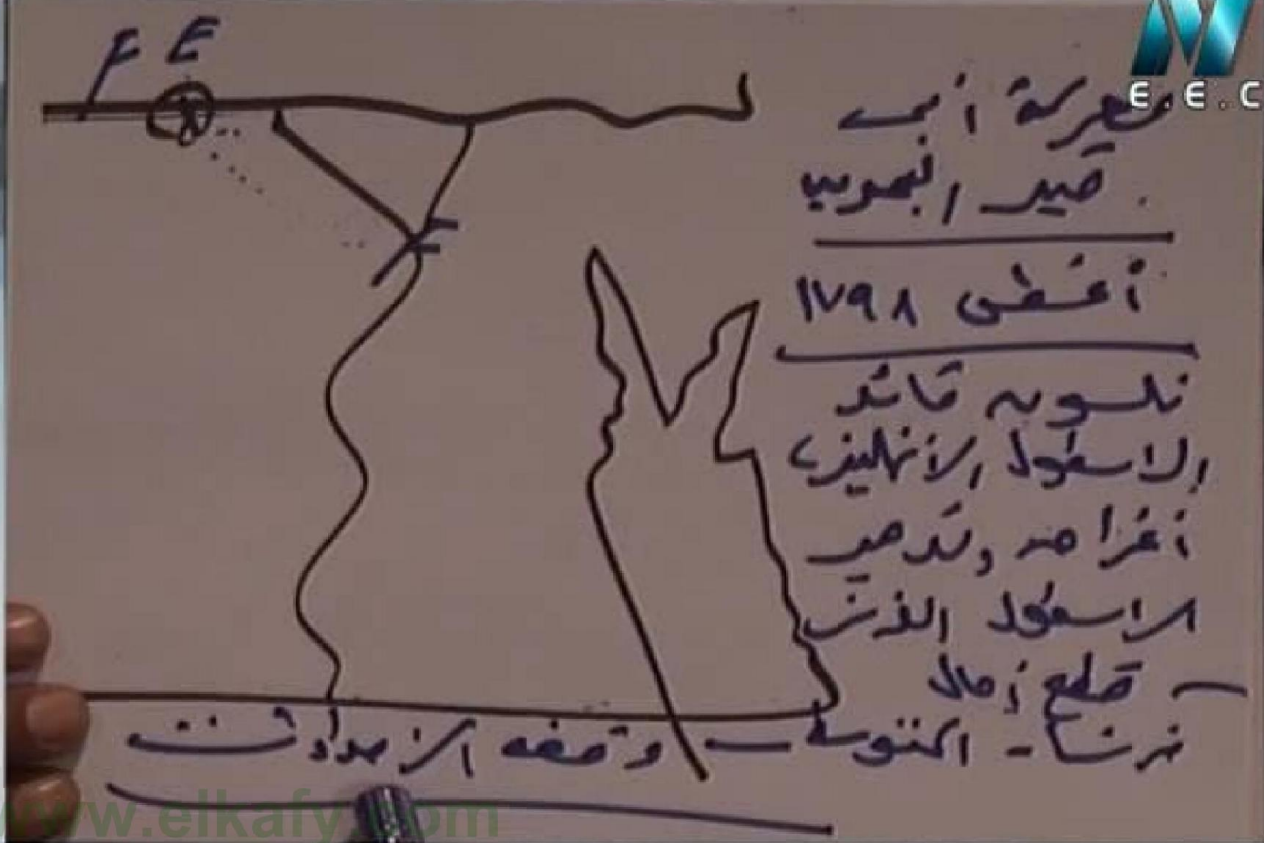 F E
E.E.C
معركة أبى
قير البحرية
أغسطس ١٧٩٨
نلسون قائد
الاسطول الانجليزى
أغراق وتدمير
الاسطول الفرنسى
– قطع أمال
فرنسا – التوسعية – وقف الامدادات
www.elkafy.com